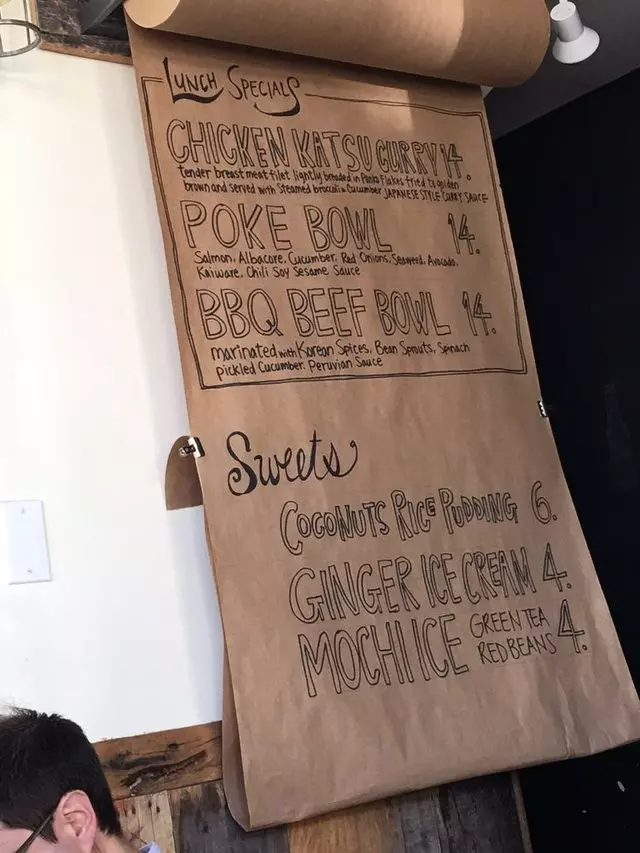 LUNCH SPECIALS
CHICKEN KATSU CURRY 14.
tender breast meat filet lightly breaded in Panko Flakes fried to golden
brown and served with Steamed broccoli & Cucumber JAPANESE STYLE CURRY SAUCE
POKE BOWL 14.
Salmon, Albacore, Cucumber, Red Onions, Seaweed, Avocado,
Kaiware, Chili Soy Sesame Sauce
BBQ BEEF BOWL 14.
marinated with Korean Spices, Bean Sprouts, Spinach
pickled Cucumber. Peruvian Sauce
Sweets
COCONUTS RICE PUDDING 6.
GINGER ICE CREAM 4.
MOCHI ICE GREEN TEA
RED BEANS 4.